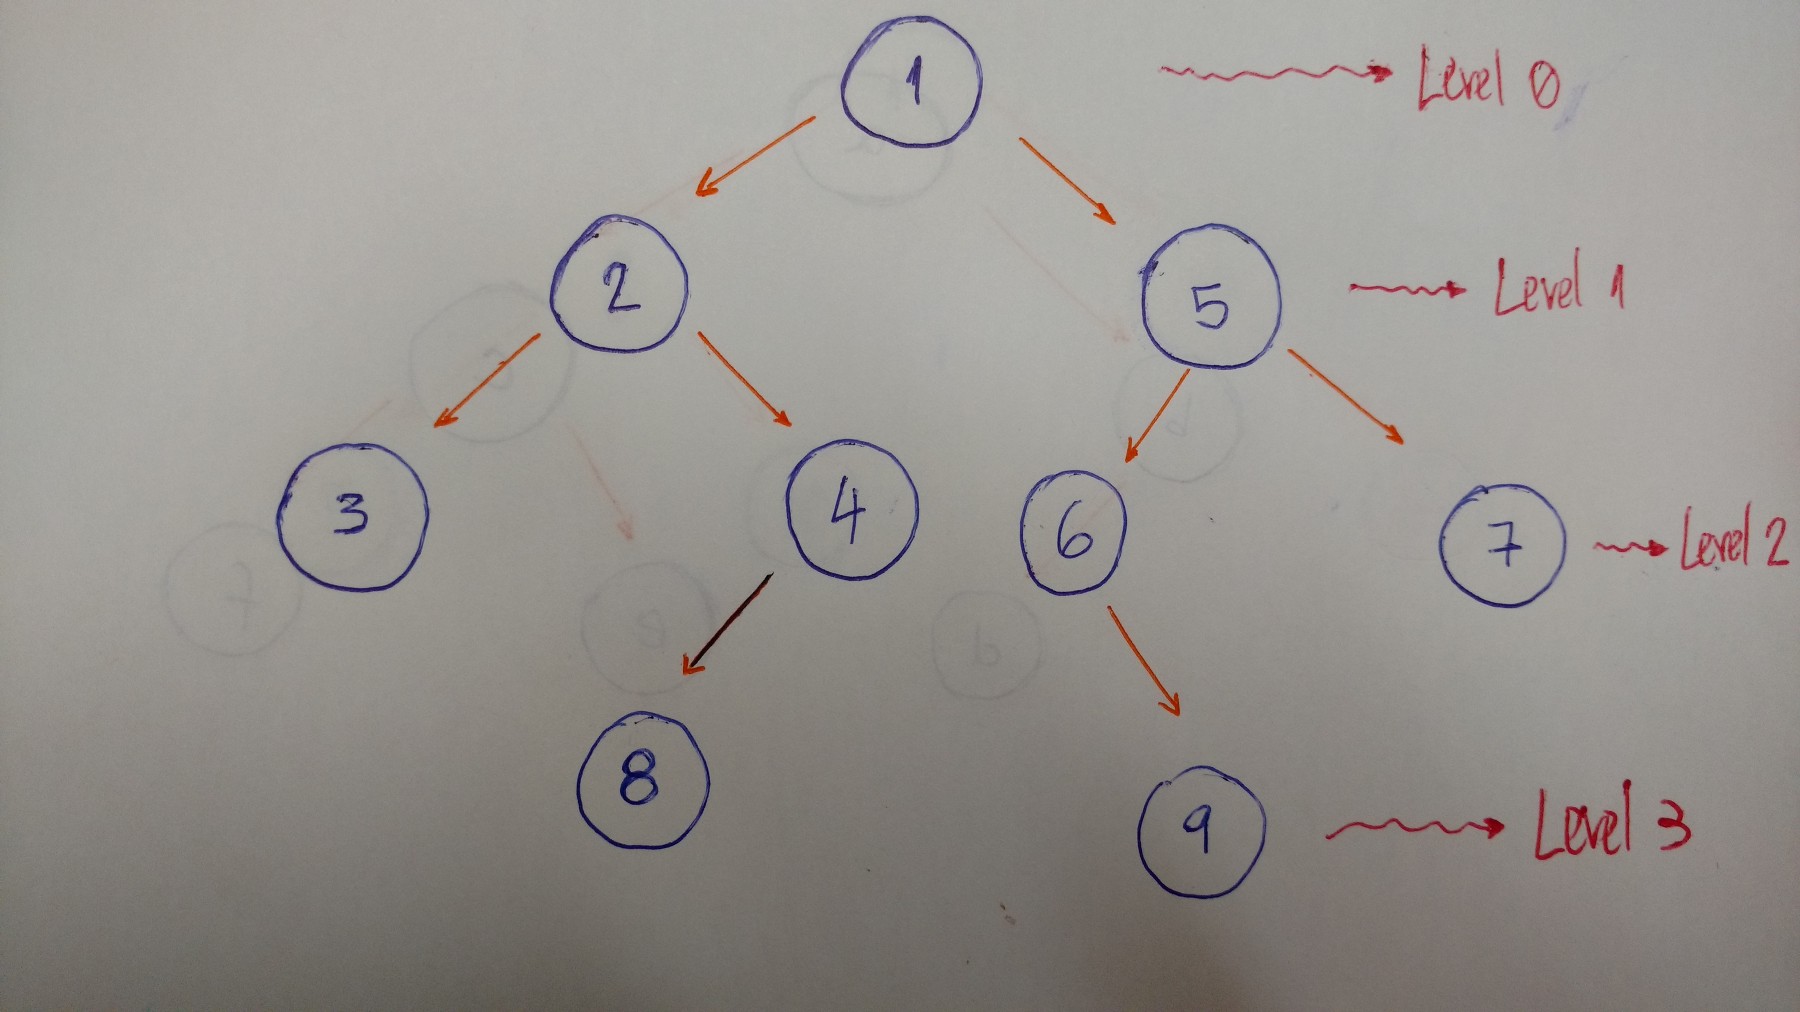 1
Level 0
2
5
Level 1
3
4
6
7
Level 2
8
9
Level 3